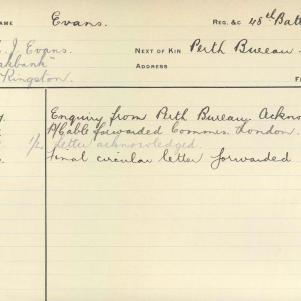 NAME Evans. REG. &C 48th Batt
J. Evans. NEXT OF KIN Perth Bureau
bank" ADDRESS
Kingston.
Enquiry from Perth Bureau. Ackno
A/Cable forwarded Commr. London.
1/2 Letter acknowledged.
Final circular letter forwarded